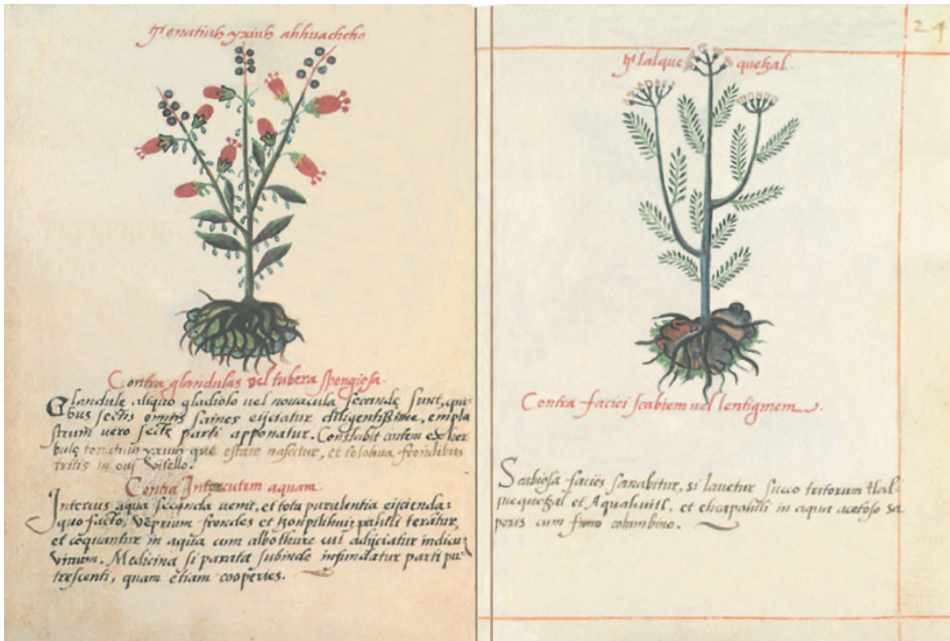 Tonatiuh yxiuh ahhuachcho
Contra glandulas vel tubera spongiosa.
Glandule aliquo gladiolo uel nouacula secande sunt, qui
bus sectis omnis sanies eijciatur diligentissime, empla
strum vero secte parti apponatur. Constabit autem ex her
bula tonatiuh yxiuh que estate nascitur, et solobua frondibus
tritis in oui vitello.
Contra Intercutem aquam.
Intercus aqua secanda venit, et tota purulentia eijcienda:
quo facto, veprium frondes et pautli teratur,
et coquantur in aqua cum albo thure cui adijciatur indicum
vitrum. Medicina sic parata subinde infundatur parti pu
trescenti, quam etiam cooperies.
29
Tlalque quetzal.
Contra faciei scabiem uel lentiginem.
Scabiosa facies sanabitur, si lauetur succo tritorum tlal
quequetzal et Aquahuitl, et in aqua acetosi sa
poris cum fimo columbino.